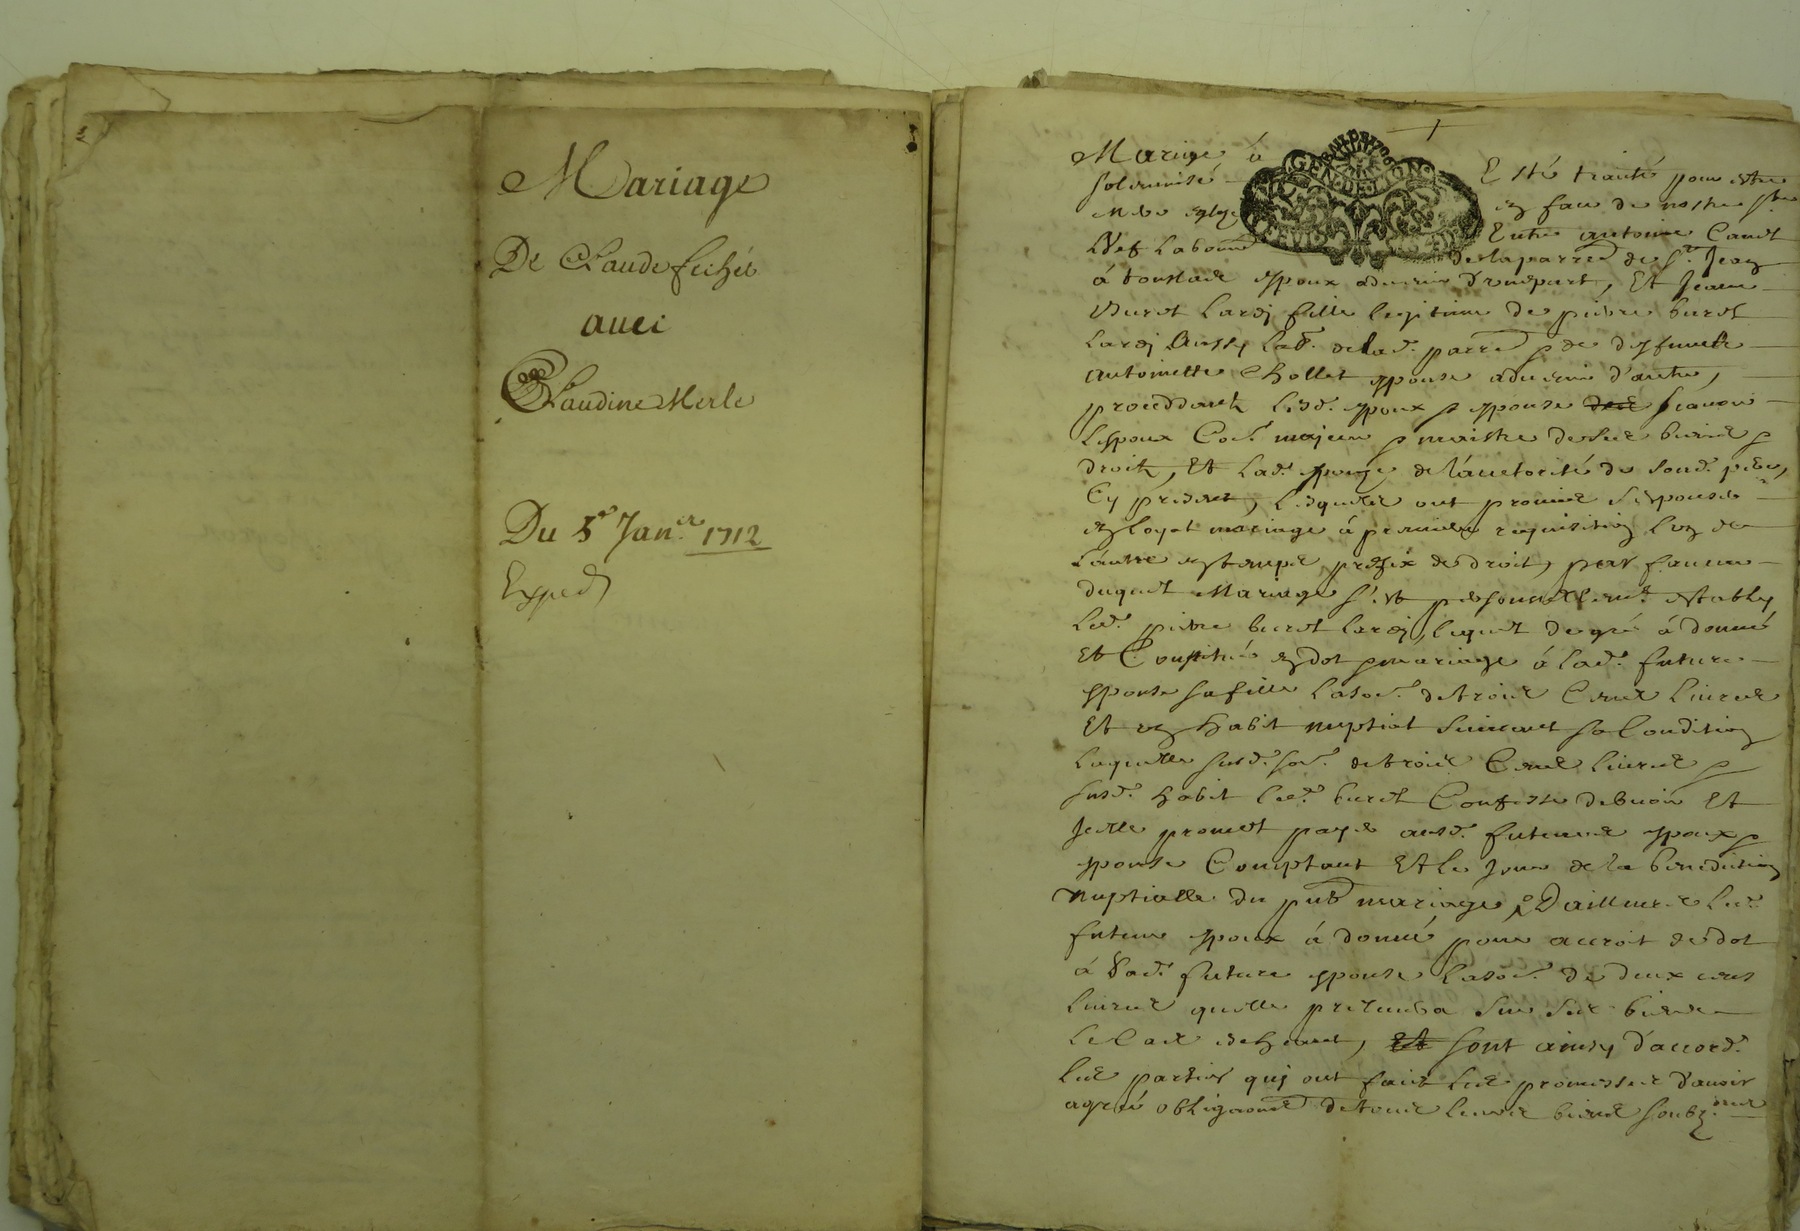 Mariage
De Claude fichet
avec
Claudine Merle
Du 5e Janer 1712
Exped
Mariage à Esté traitté pour estre
solemnisé en face de nostre ste
mere eglize Entre antoine
Labour de la parre de St Jean
à espoux advenir d'unepart, Et Jeanne
Buret fille legitime de pierre buret
aussy lab. de lad. parre & de deffuncte
antoinette Chollet espouse advenir d'autre,
proceddant lesd. espoux & espouse
l'espoux Co. majeur & maistre de ses biens &
droits, Et lad. espouze de l'auctorité de sond. pere,
Cy present, lesquels ont promis s'espouser
en loyal mariage à premiere requisition l'un de
l'autre en temps prefix de droit, en faveur
duquel Mariage s'est personnellemt. estably
led. pierre buret, lequel de gré à donné
Et Constitué en dot & mariage à lad. future
espouse sa fille la so. de trois Cent livres
Et un habit nuptial suivant sa Condition
laquelle susd. so. de trois Cent livres &
susd. habit led. buret Confesse debvoir Et
promet payer ausd. futeurs espoux &
espouse Comptant Et le Jour de la benediction
nuptialle du pnt mariage, & D'ailleurs led.
futeur espoux à donné pour accroit de dot
à lad. future espouse la so. de deux cens
livres quelle prelevera sur ses biens
le Cas, Et sont ainsy d'accord.
les parties quj ont fait les promesses d'avoir
agreé obligaons de tous leurs biens